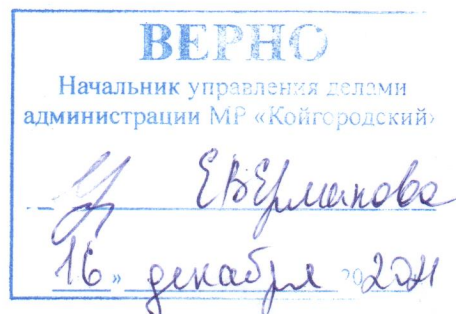 ВЕРНО
Начальник управления делами
администрации МР «Койгородский»
Е В Ермакова
16 » декабря 20